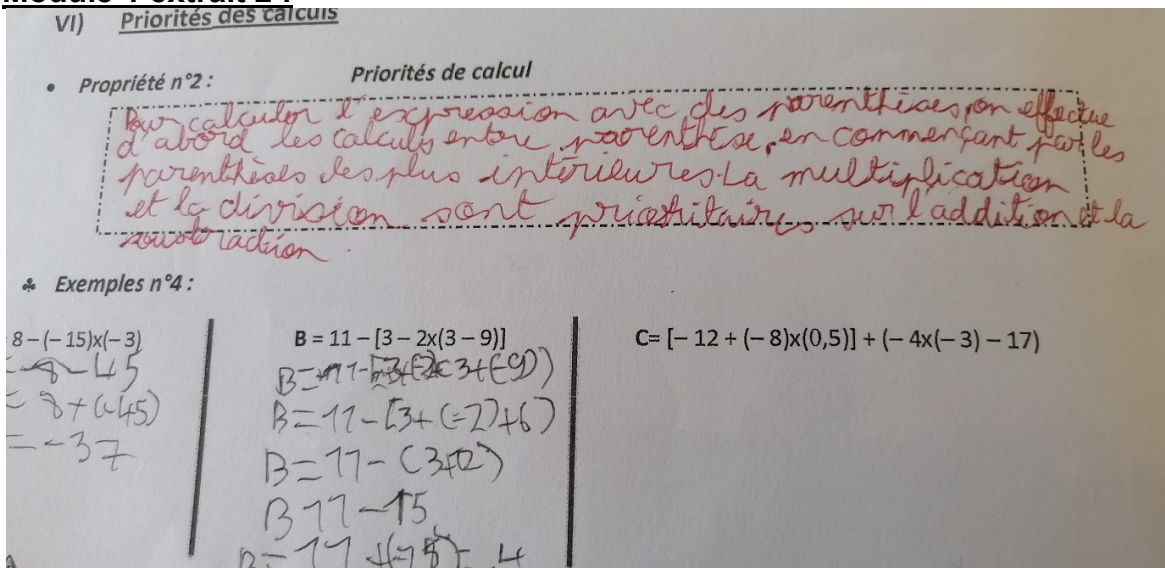 VI) Priorités des calculs
• Propriété n°2 : Priorités de calcul
Pour calculer l'expression avec des parenthèses, on effectue
d'abord les calculs entre parenthèse, en commençant par les
parenthèses les plus intérieures. La multiplication
et la division sont prioritaires sur l'addition et la
soustraction.
♣ Exemples n°4 :
8 – (– 15)x(– 3)
= 8 - 45
= 8 + (-45)
= - 37
B = 11 – [3 – 2x(3 – 9)]
B = 11 - [3 + (-2) + 6)
B = 11 - (3 + 12)
B 11 - 15
C= [– 12 + (– 8)x(0,5)] + (– 4x(– 3) – 17)